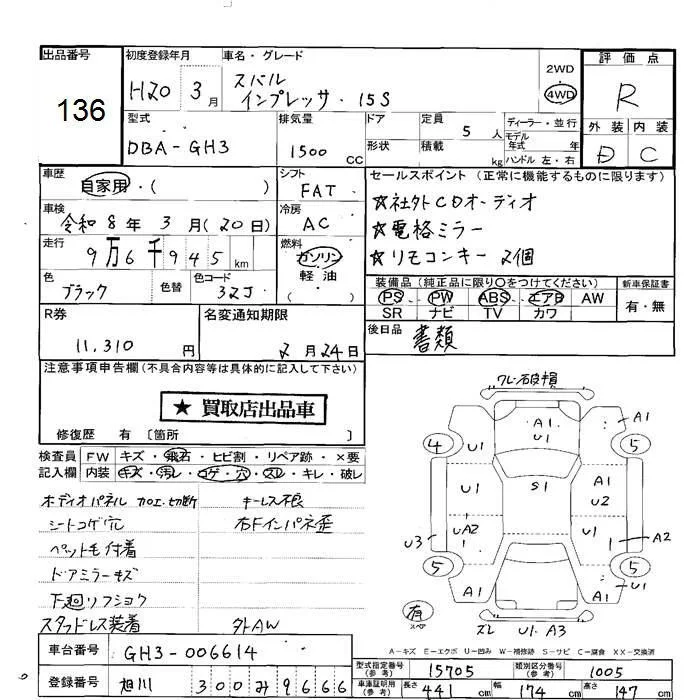 出品番号
136
初度登録年月
H20 3月
車名・グレード
スバル
インプレッサ・15S
2WD
4WD
評価点
R
外装 内装
D C
型式
DBA-GH3
排気量
1500 CC
ドア
形状
定員 5人
積載 kg
ディーラー・並行
モデル
年式 年
ハンドル 左・右
車歴
自家用・( )
シフト
FAT
車検
令和8年3月(20日)
冷房
AC
走行
9万6千945km
燃料
ガソリン
軽油
( )
色
ブラック
色替
色コード
32J
セールスポイント(正常に機能するものに限ります)
☆社外CDオーディオ
☆電格ミラー
☆リモコンキー 2個
装備品(純正品に限り〇をつけてください)
PS PW ABS エアB AW
SR ナビ TV カワ
新車保証書
有・無
R券
11,310円
名変通知期限
2月24日
後日品
書類
注意事項申告欄(不具合内容等は具体的に記入して下さい)
★ 買取店出品車
修復歴 有 〔箇所 〕
検査員
記入欄
FW キズ・飛石・ヒビ割・リペア跡・×要
内装 キズ・汚レ・コゲ・穴・スレ・キレ・破レ
ボディオパネル加工・切断
キーレス不良
シートコゲ穴
右Fインパネ歪
ペット毛付着
ドアミラーキズ
下廻リフショク
スタッドレス装着
外AW
車台番号
GH3-006614
登録番号
旭川 300み9666
フレーム破損
A1
U1
A1
4
U1
5
A1
U1
S1
U2
U3
UA2
U1
1
A2
5
5
A1
A1
U1
有
スペア
S2
U1・A3
A-キズ E-エクボ U-凹み W-補修跡 S-サビ C-腐食 XX-交換済
型式指定番号
(参考)
15705
類別区分番号
(参考)
1005
車庫証明用
(参考)
長さ 441cm
幅 174cm
高さ 147cm